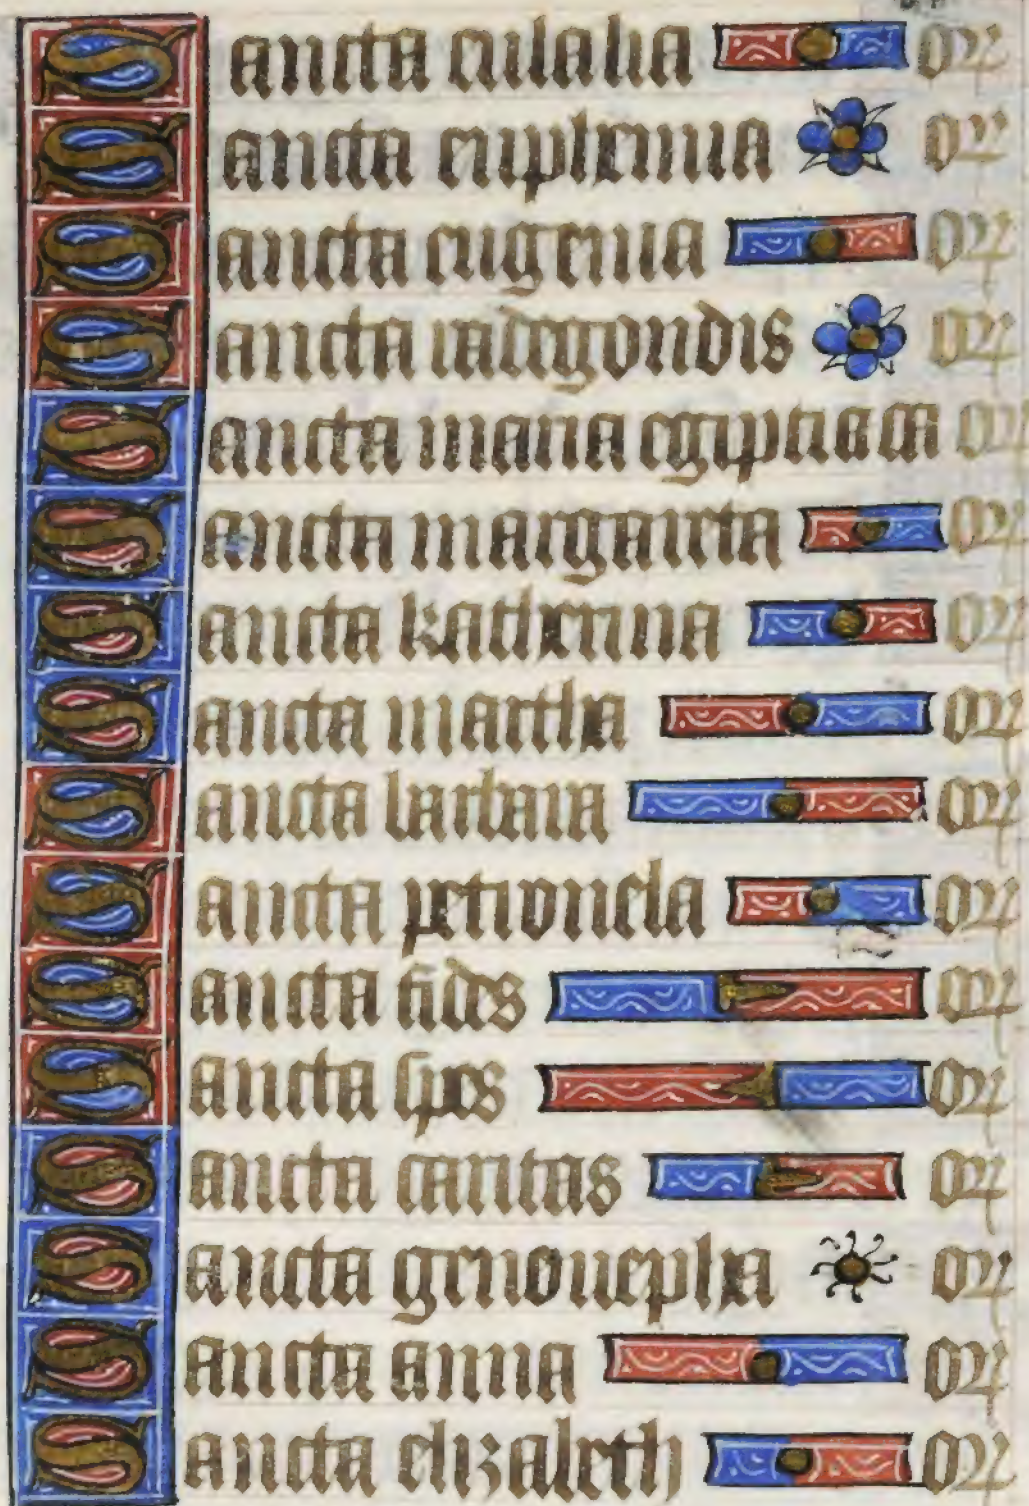 Sancta eulalia or
Sancta euphemia or
Sancta eugenia or
Sancta radegondis or
Sancta maria egiptiaca or
Sancta margareta or
Sancta katherina or
Sancta martha or
Sancta barbara or
Sancta petronela or
Sancta fides or
Sancta spes or
Sancta caritas or
Sancta genouepha or
Sancta anna or
Sancta elizabeth or